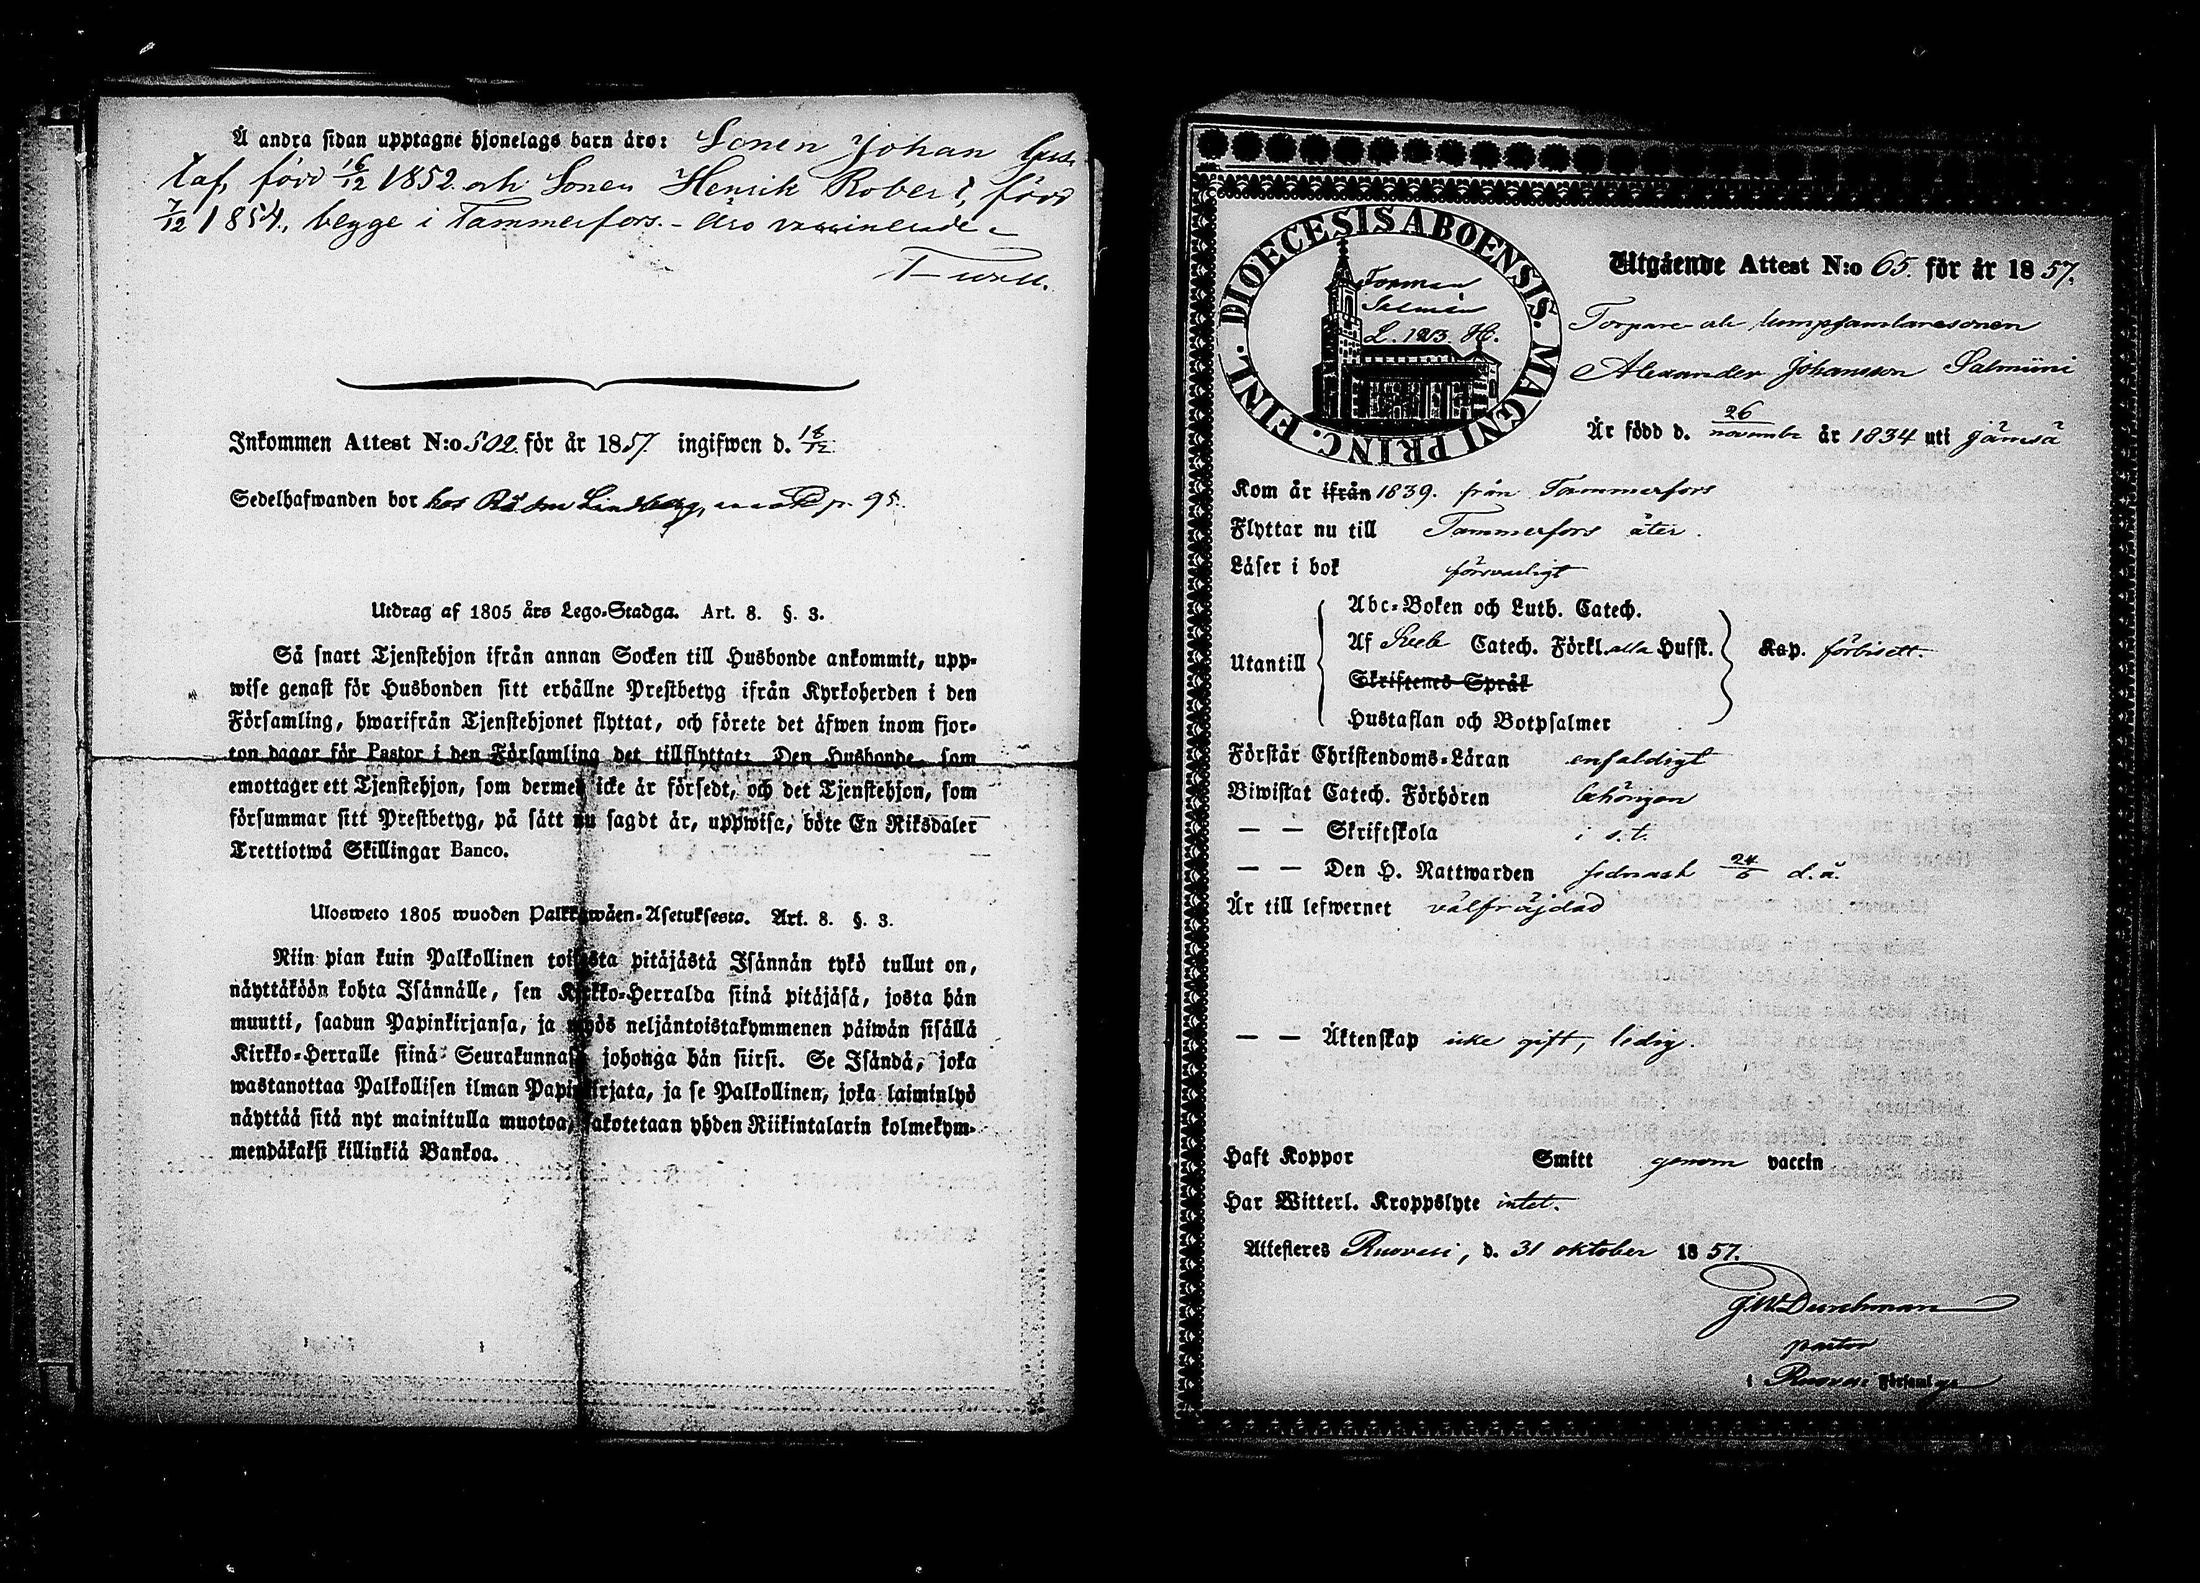 Å andra sidan upptagne hjonelags barn äro: Sonen Johan Gus-
taf, född 16/12 1852. och Sonen Henrik Robert, född
7/12 1854., begge i Tammerfors. - Äro vaccinerade -
Inkommen Attest N:o 502. för år 1857. ingifwen d. 18/12.
Sedelhafwanden bor hos Lindberg, p. 95.
Utdrag af 1805 års Lego-Stadga. Art. 8. §. 3.
Så snart Tjenstehjon ifrån annan Socken till Husbonde ankommit, upp-
wise genast för Husbonden sitt erhållne Prestbetyg ifrån Kyrkoherden i den
Församling, hwarifrån Tjenstehjonet flyttat, och förete det äfwen inom fjor-
ton dagar för Pastor i den Församling det tillflyttat: Den Husbonde, som
emottager ett Tjenstehjon, som dermed icke är försedt, och det Tjenstehjon, som
försummar sitt Prestbetyg, på sätt nu sagdt är, uppwisa, böte En Riksdaler
Trettiotwå Skillingar Banco.
Ulosweto 1805 wuoden Palkkawäen-Asetuksesta. Art. 8. §. 3.
Niin pian kuin Palkollinen toisesta pitäjästä Isännän tykö tullut on,
näyttäköön kohta Isännälle, sen Kirkko-Herralda siinä pitäjäsä, josta hän
muutti, saadun Papinkirjansa, ja myös neljäntoistakymmenen päiwän sisällä
Kirkko-Herralle siinä Seurakunnasa johonga hän siirsi. Se Isändä, joka
wastanottaa Palkollisen ilman Papinkirjata, ja se Palkollinen, joka laiminlyö
näyttää sitä nyt mainitulla muotoa, sakotetaan yhden Riikintalarin kolmekym-
mendäkaksi killinkiä Bankoa.
DIOECESIS ABOENSIS. MAGNI PRINC. FINL.
L. 123. H.
Utgående Attest N:o 65. för år 1857.
Torpare och lumpsamlaresonen
Alexander Johansson Salmiini
Är född d. 26 november år 1834 uti Jämsä
Kom år ifrån 1839. från Tammerfors
Flyttar nu till Tammerfors åter.
Läser i bok försvarligt
Abc-Boken och Luth. Catech.
Utantill Af Sveb. Catech. Förkl. alla Hufst. Kap. förbisett.
Skriftenes Språk
Hustaflan och Botpsalmer
Förstår Christendoms-Läran enfaldigt
Biwistat Catech. Förhören behörigen
— — Skriftskola i s.t.
— — Den H. Nattwarden sednast 24/6 d.å.
Är till lefwernet välfräjdad
— — Äktenskap icke gift, ledig.
Haft Koppor Smitt genom vaccin
Har Witterl. Kroppslyte intet.
Attesteres Ruovesi, d. 31 oktober 1857.
G.W. Durchman
pastor
i Ruovesi Församlinge